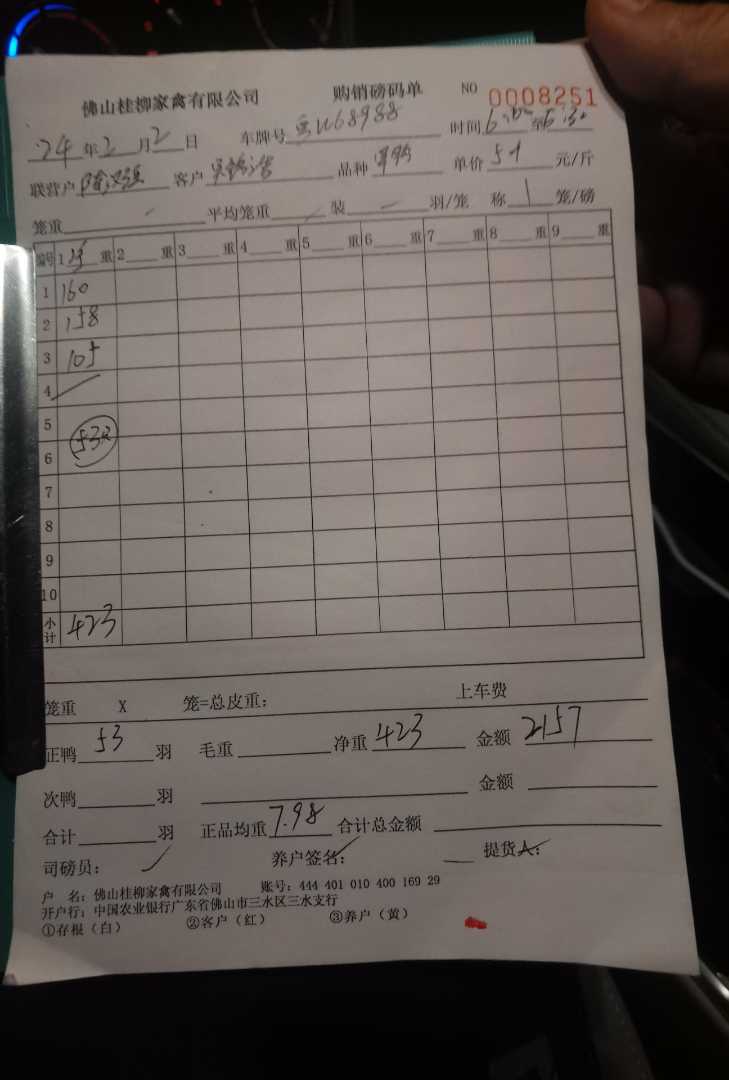 佛山桂柳家禽有限公司 购销磅码单 NO 0008251
24年2月2日 车牌号 U68988 时间 6: 至6:30
联营户 客户 品种 单价5.1元/斤
笼重 平均笼重 装 羽/笼 称1笼/磅
编号 1 重 2 重 3 重 4 重 5 重 6 重 7 重 8 重 9 重
1 160
2 158
3 105
4
5
532
6
7
8
9
10
小计 423
笼重 X 笼=总皮重: 上车费
正鸭 53 羽 毛重 净重 423 金额 2157
次鸭 羽 金额
合计 羽 正品均重 7.98 合计总金额
司磅员: 养户签名: 提货人:
户 名: 佛山桂柳家禽有限公司 账号: 444 401 010 400 169 29
开户行: 中国农业银行广东省佛山市三水区三水支行
①存根（白） ②客户（红） ③养户（黄）